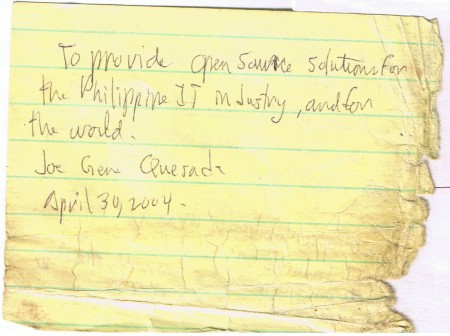 To provide open source solutions for
the Philippine IT industry, and for
the world.
Joe Gene Quesada
April 30, 2004.